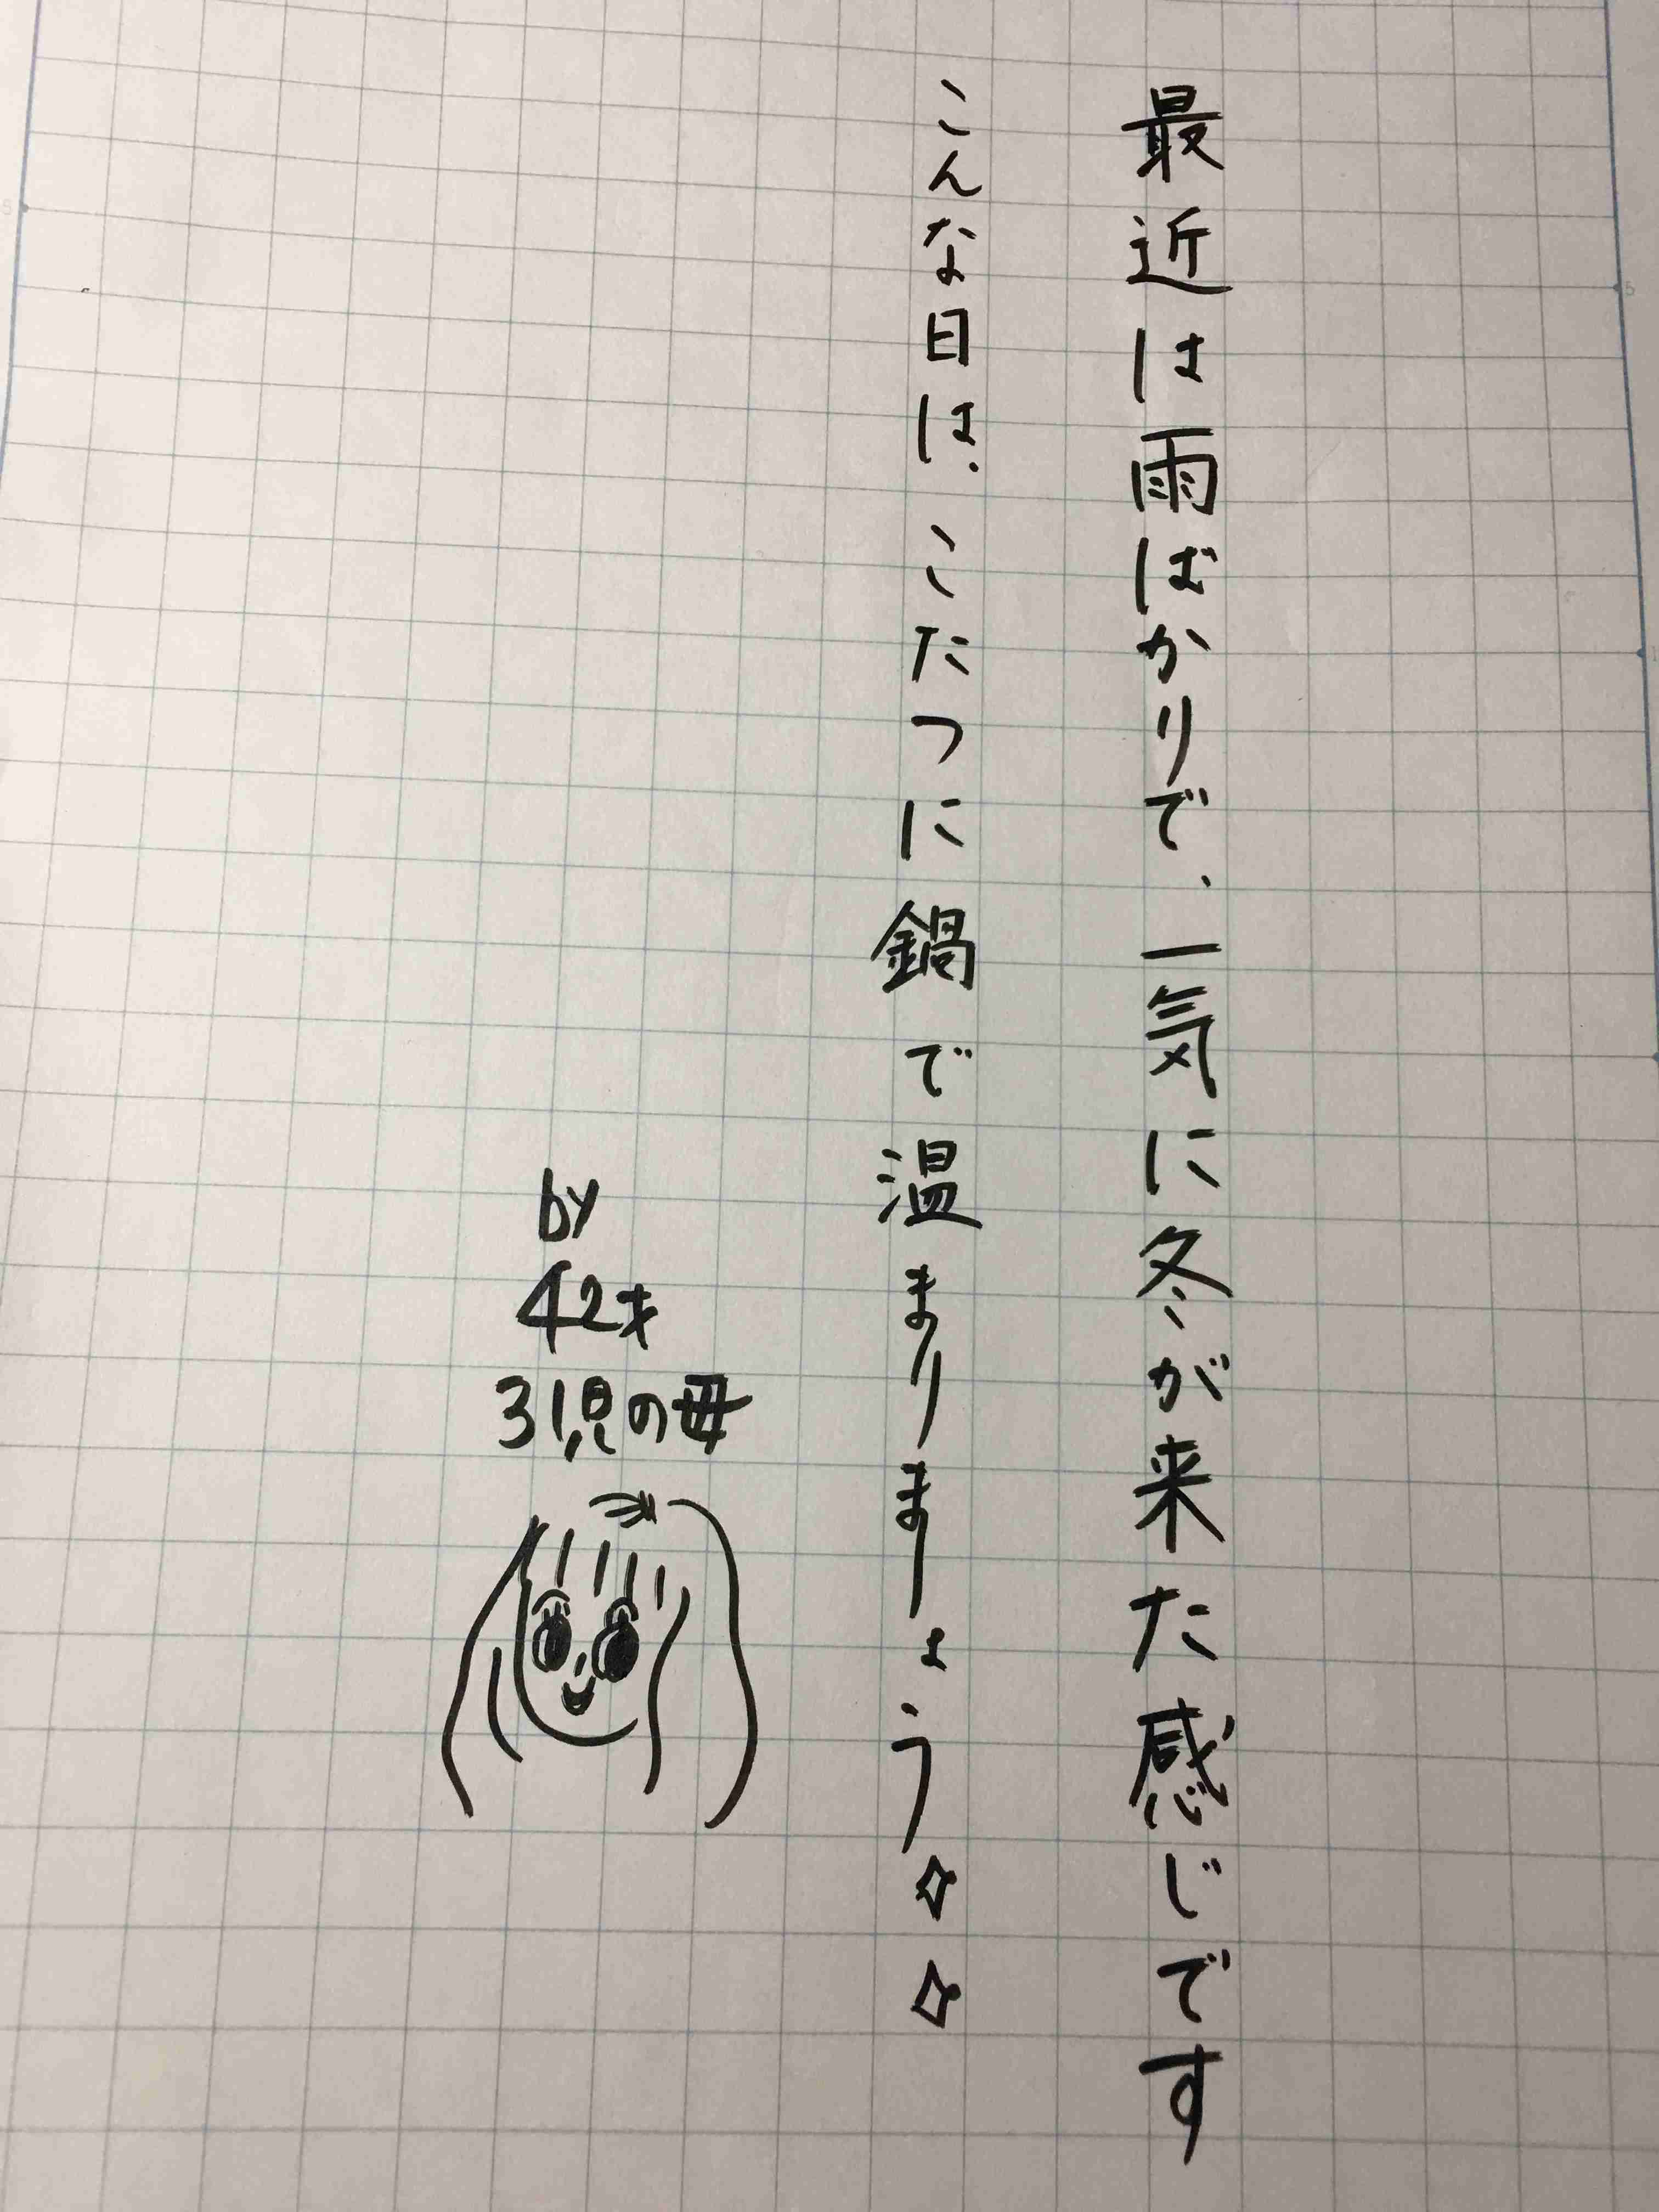 最近は雨ばかりで、一気に冬が来た感じです
こんな日は、こたつに鍋で温まりましょう✧✧
by
42才
3児の母